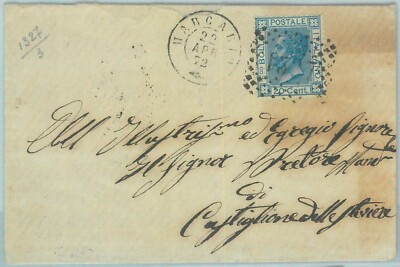 1327
3
MARCARIA
22
APR
72
BOLLO POSTALE
20 Cent.
All'Illustrissimo ed Egregio Signore
Il Signor Pretore
di
Castiglione delle Stiviere